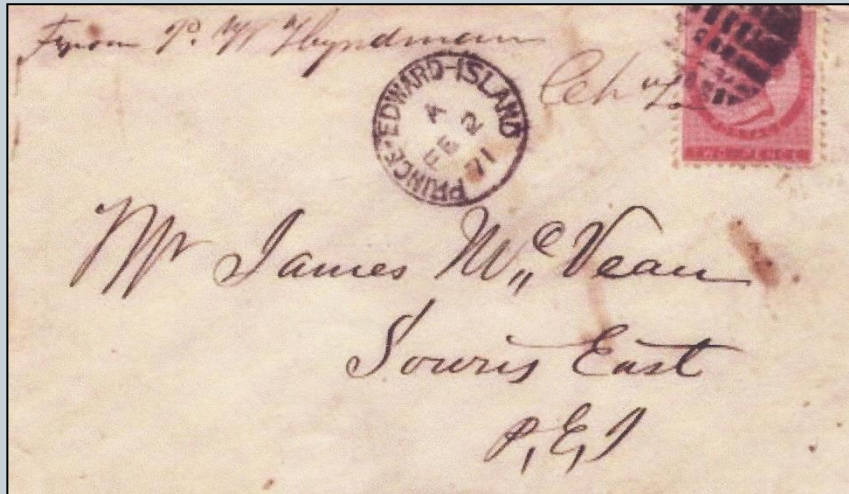 From
Hyndman
PRINCE-EDWARD-ISLAND
A
FE 2
71
TWO PENCE
Mr James McVean
Souris East
P,E,I